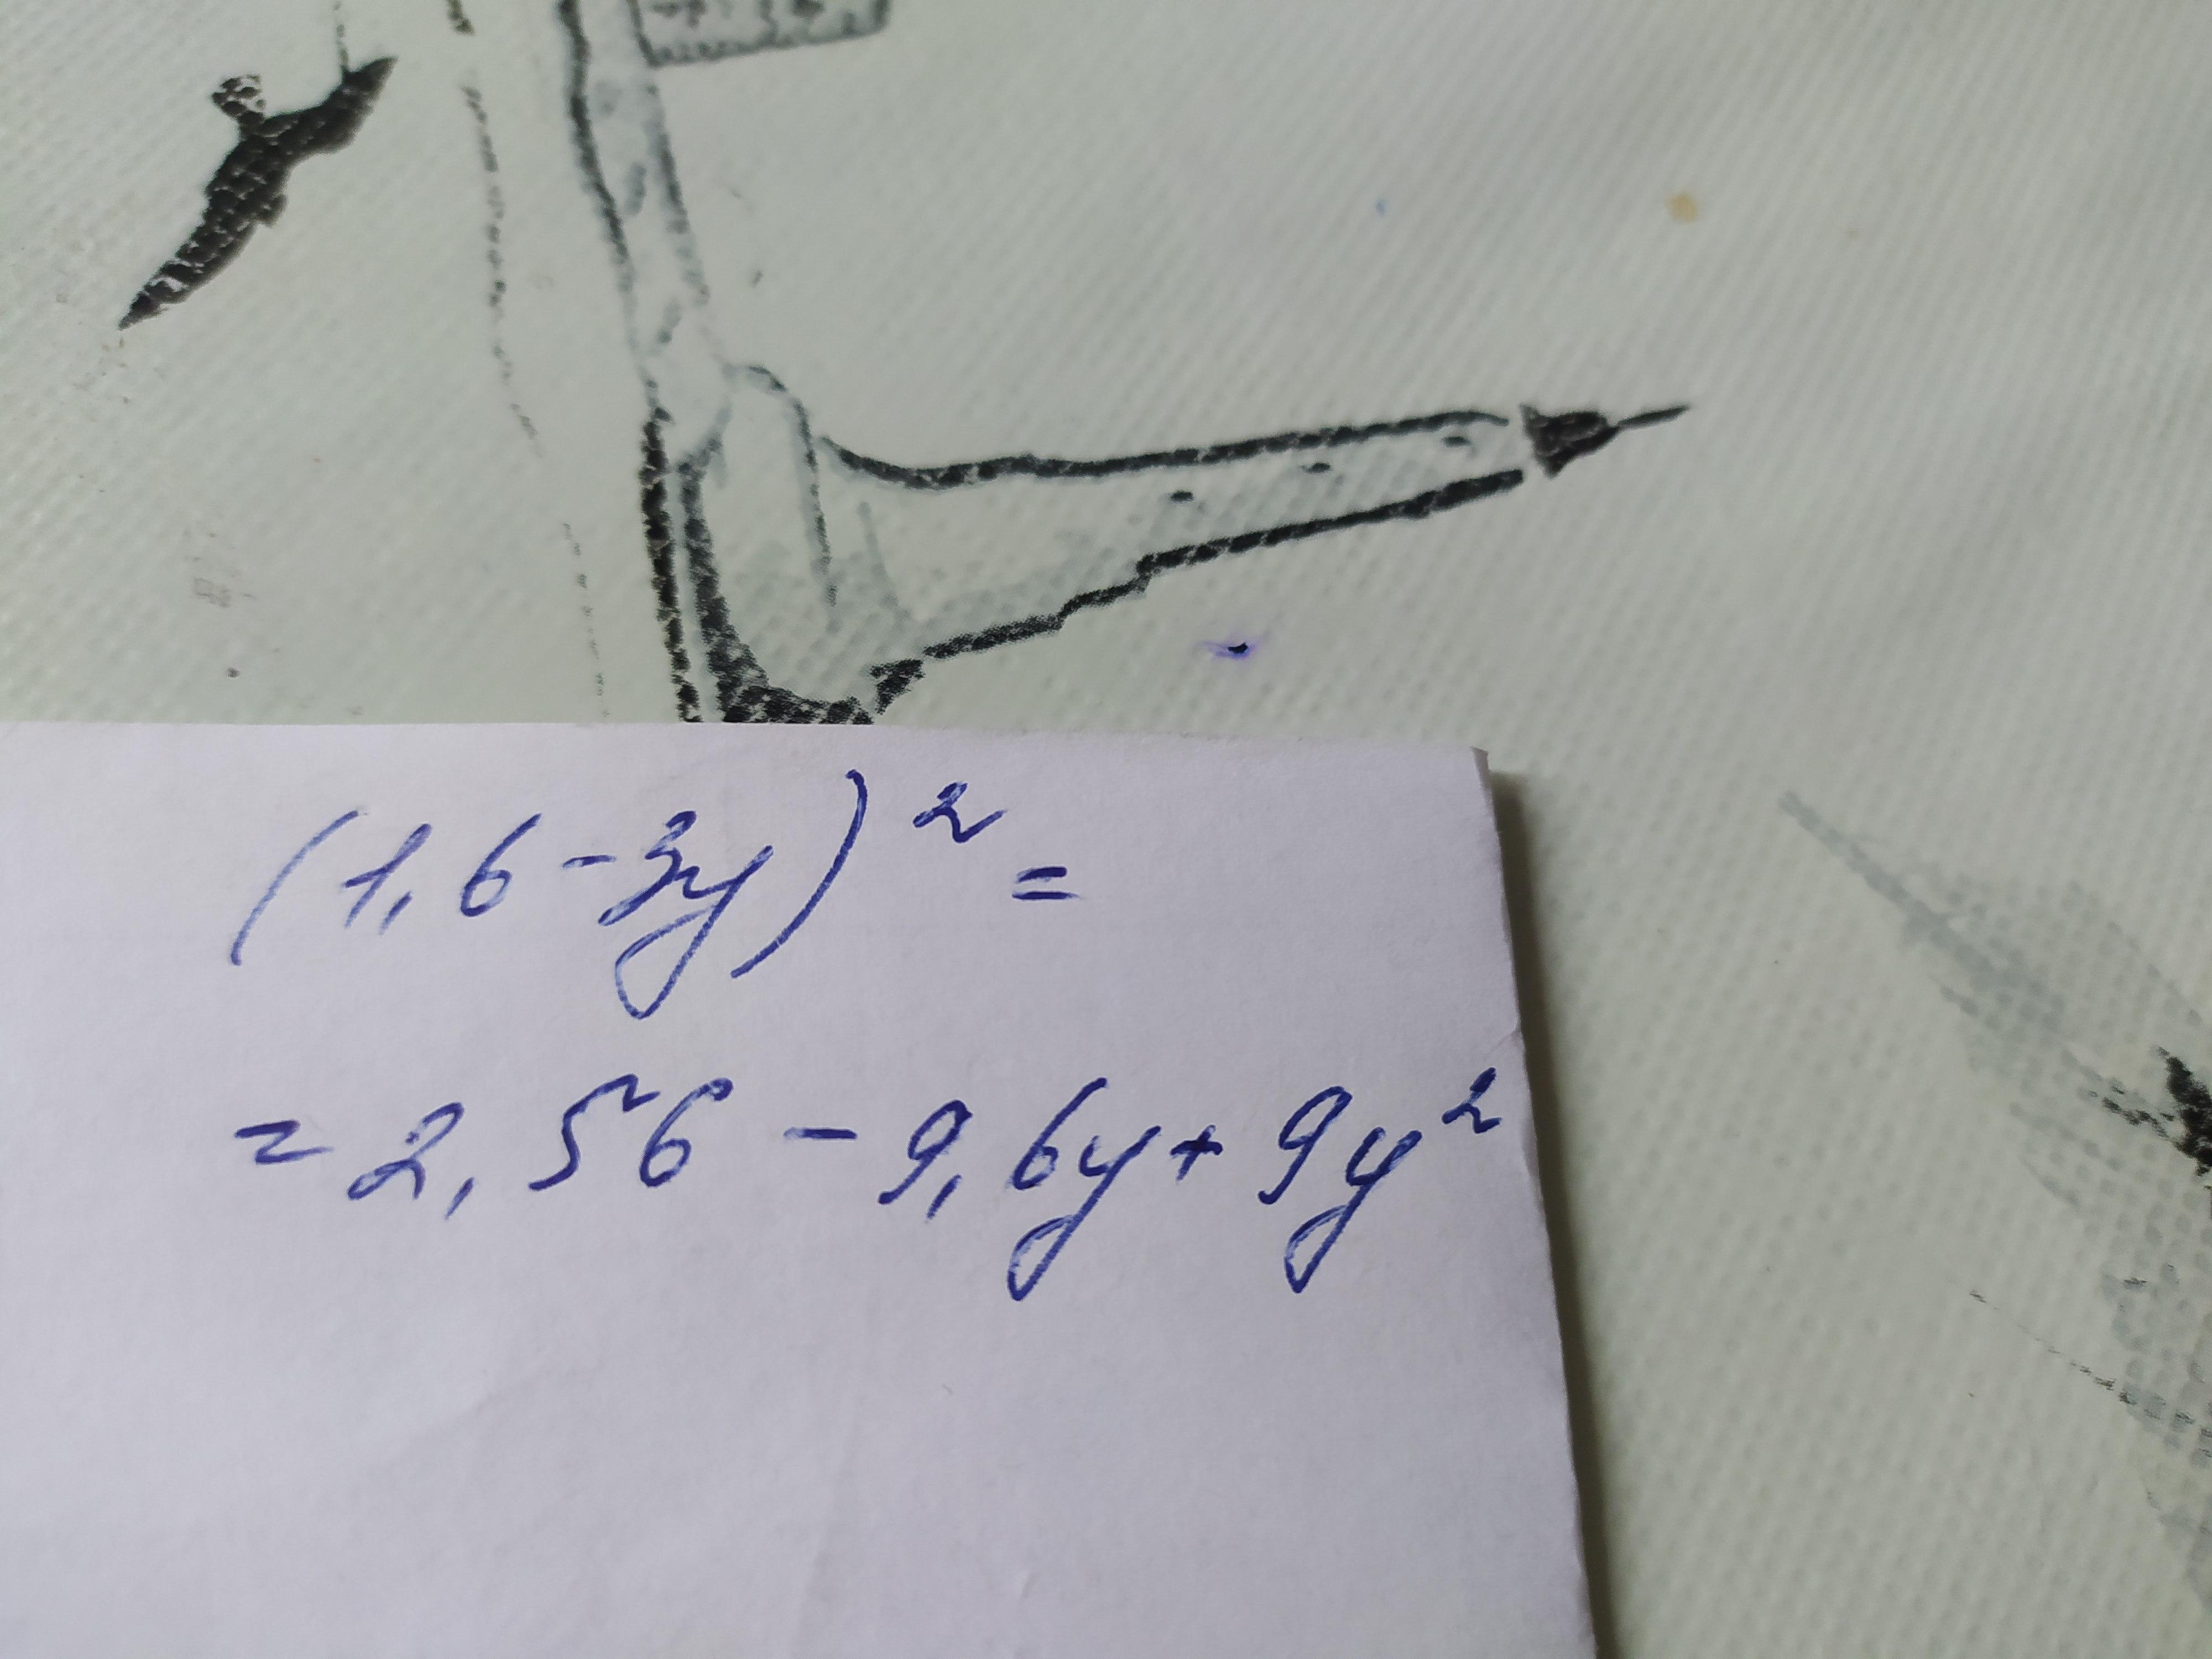 (1,6-3y)²=
=2,56-9,6y+9y²